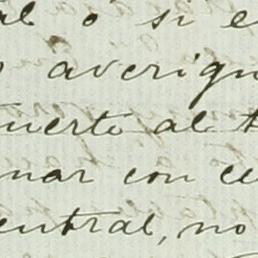 al o si e
averign
uerto al t
nar con ce
entral, no